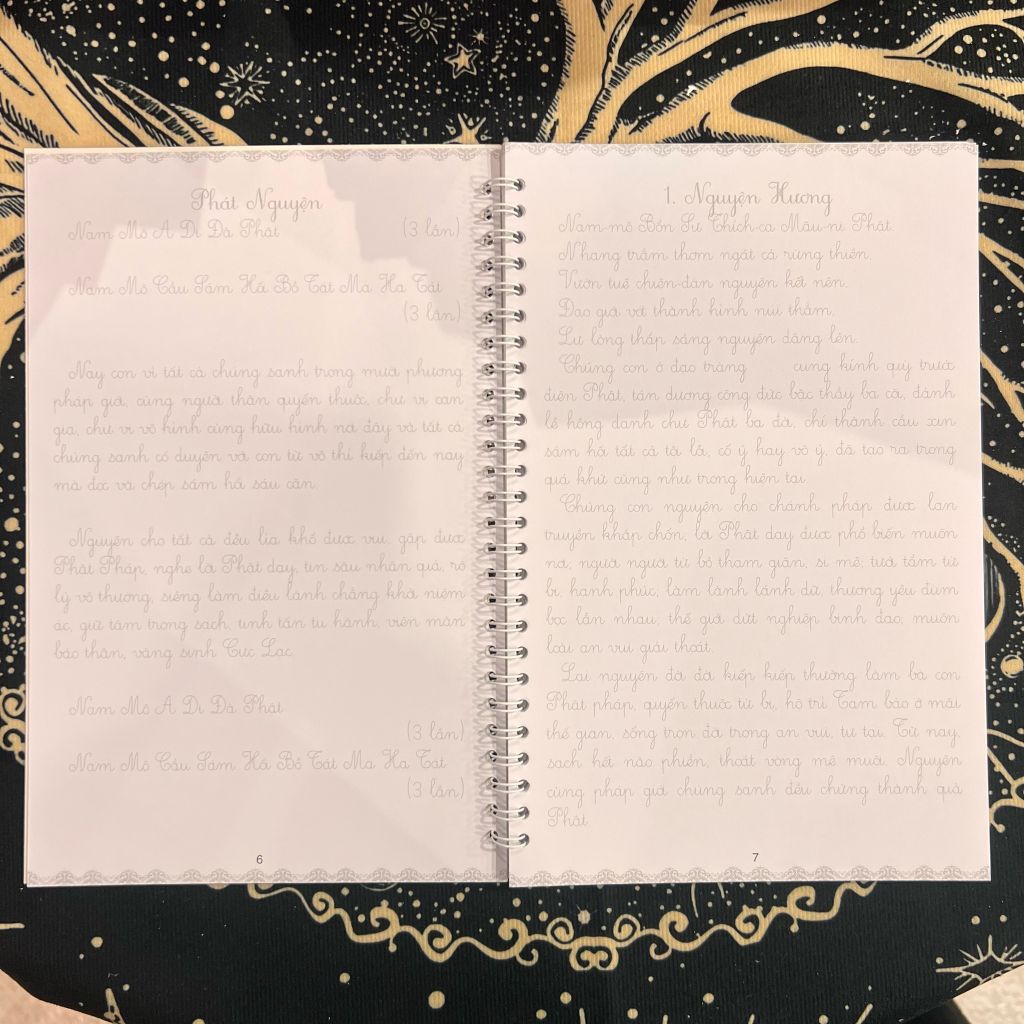 Phát Nguyện
Nam Mô A Di Đà Phật (3 lần)
Nam Mô Cầu Sám Hối Bồ Tát Ma Ha Tát
(3 lần)
Nay con vì tất cả chúng sanh trong mười phương
pháp giới, cùng người thân quyến thuộc, chư vị oan
gia, chư vị vô hình cùng hữu hình nơi đây và tất cả
chúng sanh có duyên với con từ vô thỉ kiếp đến nay
mà đọc và chép sám hối sáu căn.
Nguyện cho tất cả đều lìa khổ được vui, gặp được
Phật Pháp, nghe lời Phật dạy, tin sâu nhân quả, rõ
lý vô thường, siêng làm điều lành chẳng khởi niệm
ác, giữ tâm trong sạch, tinh tấn tu hành, viên mãn
báo thân, vãng sinh Cực Lạc.
Nam Mô A Di Đà Phật
(3 lần)
Nam Mô Cầu Sám Hối Bồ Tát Ma Ha Tát
(3 lần)
6
1. Nguyện Hương
Nam-mô Bổn Sư Thích-ca Mâu-ni Phật.
Nhang trầm thơm ngát cả rừng thiền.
Vườn tuệ chiên-đàn nguyện kết nên.
Dao giới vót thành hình núi thẳm.
Lư lòng thắp sáng nguyện dâng lên.
Chúng con ở đạo tràng cung kính quỳ trước
điện Phật, tán dương công đức bậc thầy ba cõi, đảnh
lễ hồng danh chư Phật ba đời, chí thành cầu xin
sám hối tất cả tội lỗi, cố ý hay vô ý, đã tạo ra trong
quá khứ cũng như trong hiện tại.
Chúng con nguyện cho chánh pháp được lan
truyền khắp chốn, lời Phật dạy được phổ biến muôn
nơi; người người từ bỏ tham giận, si mê; tưới tẩm từ
bi, hạnh phúc, làm lành lánh dữ, thương yêu đùm
bọc lẫn nhau; thế giới dứt nghiệp binh đao; muôn
loài an vui giải thoát.
Lại nguyện đời đời kiếp kiếp thường làm bà con
Phật pháp, quyến thuộc từ bi, hộ trì Tam bảo ở mãi
thế gian, sống trọn đời trong an vui, tự tại. Từ nay,
sạch hết não phiền, thoát vòng mê muội. Nguyện
cùng pháp giới chúng sanh đều chứng thành quả
Phật.
7